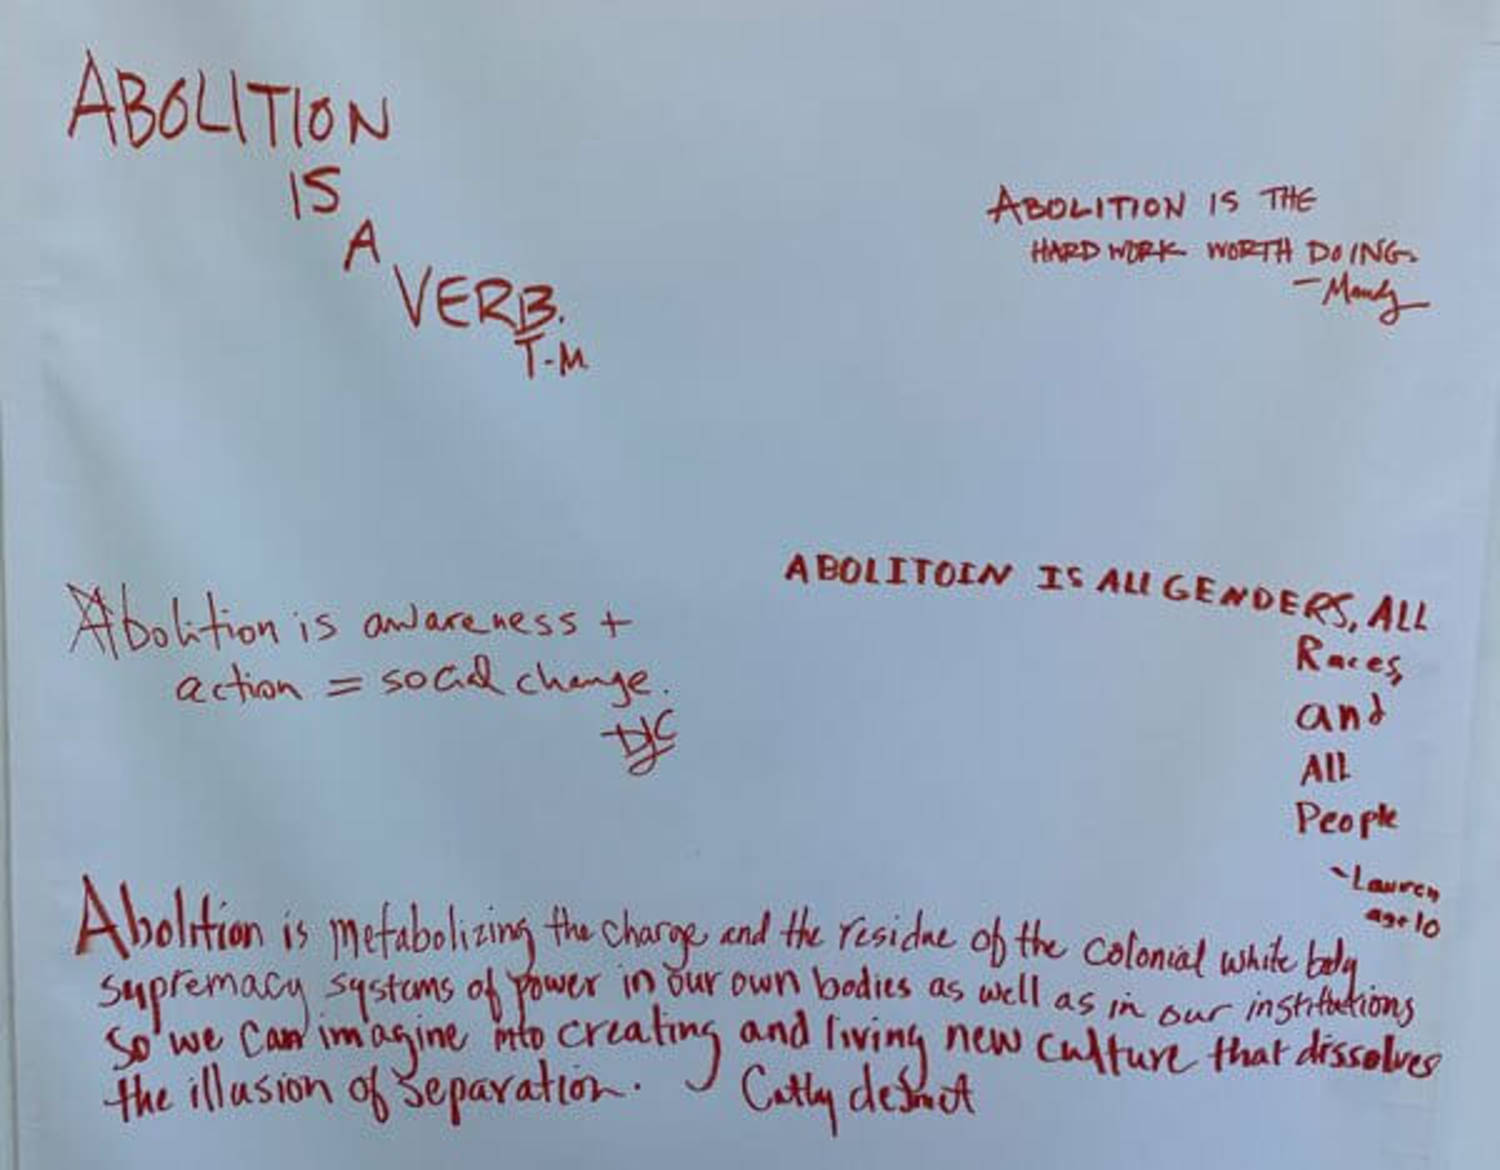 ABOLITION
IS
A
VERB.
T-M
ABOLITION IS THE
HARD WORK WORTH DOING.
-Mandy
Abolition is awareness +
action = social change.
DJC
ABOLITOIN IS ALL GENDERS, ALL
Races,
and
All
People
-Lauren
age 10
Abolition is metabolizing the charge and the residue of the colonial white body
supremacy systems of power in our own bodies as well as in our institutions
so we can imagine into creating and living new culture that dissolves
the illusion of separation. Cathy